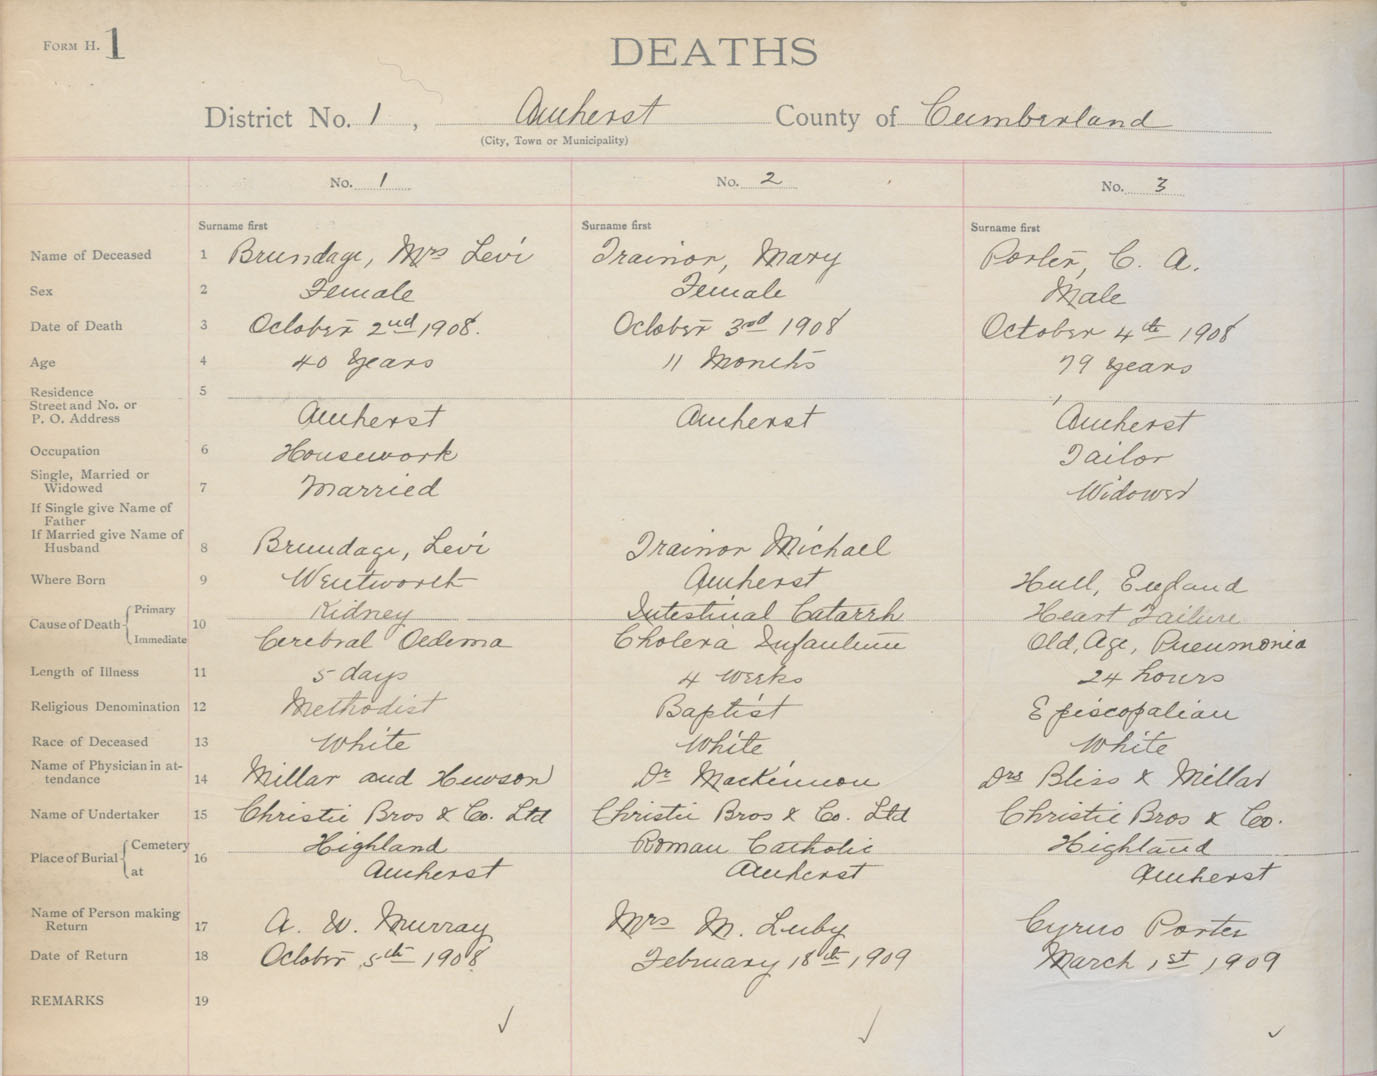 FORM H. 1
DEATHS
District No. 1, Amherst County of Cumberland
(City, Town or Municipality)
No. 1 No. 2 No. 3
Surname first Surname first Surname first
Name of Deceased 1 Brundage, Mrs Levi Trainor, Mary Porter, C. A.
Sex 2 Female Female Male
Date of Death 3 October 2nd 1908. October 3rd 1908 October 4th 1908
Age 4 40 years 11 Months 79 years
Residence 5
Street and No. or
P. O. Address Amherst Amherst Amherst
Occupation 6 Housework Tailor
Single, Married or
Widowed 7 Married Widower
If Single give Name of
Father
If Married give Name of
Husband 8 Brundage, Levi Trainor Michael
Where Born 9 Wentworth Amherst Hull, England
Cause of Death 10 Primary Kidney Intestinal Catarrh Heart Failure
Immediate Cerebral Oedema Cholera Infantum Old, Age, Pneumonia
Length of Illness 11 5 days 4 weeks 24 hours
Religious Denomination 12 Methodist Baptist Episcopalian
Race of Deceased 13 White White White
Name of Physician in at-
tendance 14 Millar and Hewson Dr MacKinnon Drs Bliss & Millar
Name of Undertaker 15 Christie Bros & Co. Ltd Christie Bros & Co. Ltd Christie Bros & Co.
Place of Burial 16 Cemetery Highland Roman Catholic Highland
at Amherst Amherst Amherst
Name of Person making
Return 17 A. W. Murray Mrs M. Luby Cyrus Porter
Date of Return 18 October 5th 1908 February 18th 1909 March 1st 1909
REMARKS 19